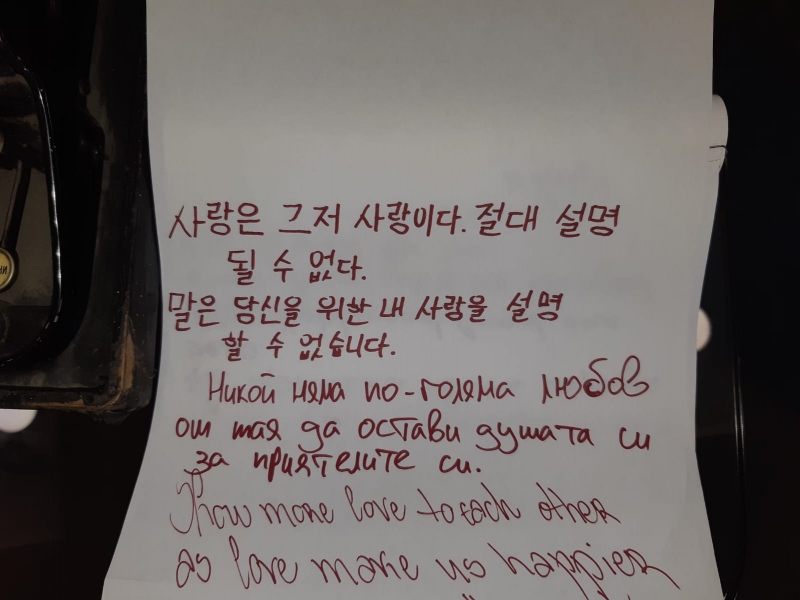 사랑은 그저 사랑이다. 절대 설명
될 수 없다.
말은 당신을 위한 내 사랑을 설명
할 수 없습니다.
Никой няма по-голяма любов
от тая да остави душата си
за приятелите си.
Show more love to each other
as love make us happier